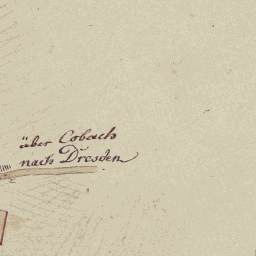 über Cobach
nach Dresden